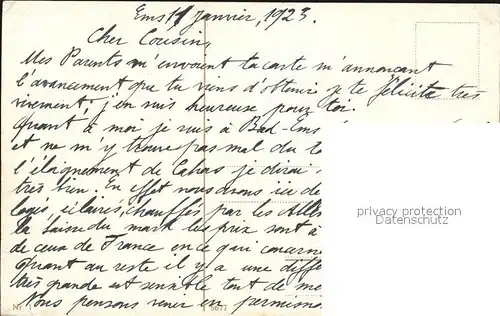 Ems 11 janvier, 1923.
Cher Cousin,
Mes Parents m'envoient ta carte m'annonçant
l'avancement que tu viens d'obtenir je te félicite très
vivement, j'en suis heureuse pour toi.
Quant à moi je suis à Bad-Ems
et ne m'y trouve pas mal du
l'éloignement de Cahors je dirai
très bien. En effet nous avons ici de
logés, éclairés, chauffés par les
la baisse du mark les prix sont à
de ceux de France en ce qui concerne
Quant au reste il y a une
très grande et sensible tout de
Nous pensons venir en
privacy protection
Datenschutz